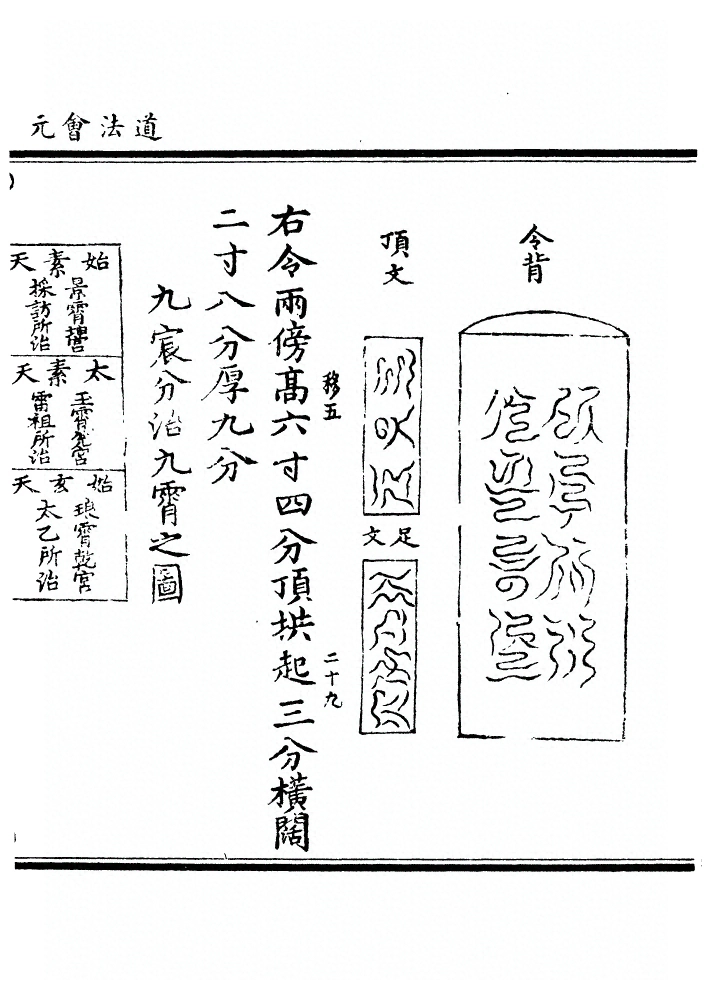 道法會元
令背
頂文
足文
移五 二十九
右令兩傍高六寸四分頂拱起三分橫闊
二寸八分厚九分
九宸分治九霄之圖
始素天
景霄宮
採訪所治
太素天
玉霄兌宮
雷祖所治
始玄天
琅霄乾宮
太乙所治